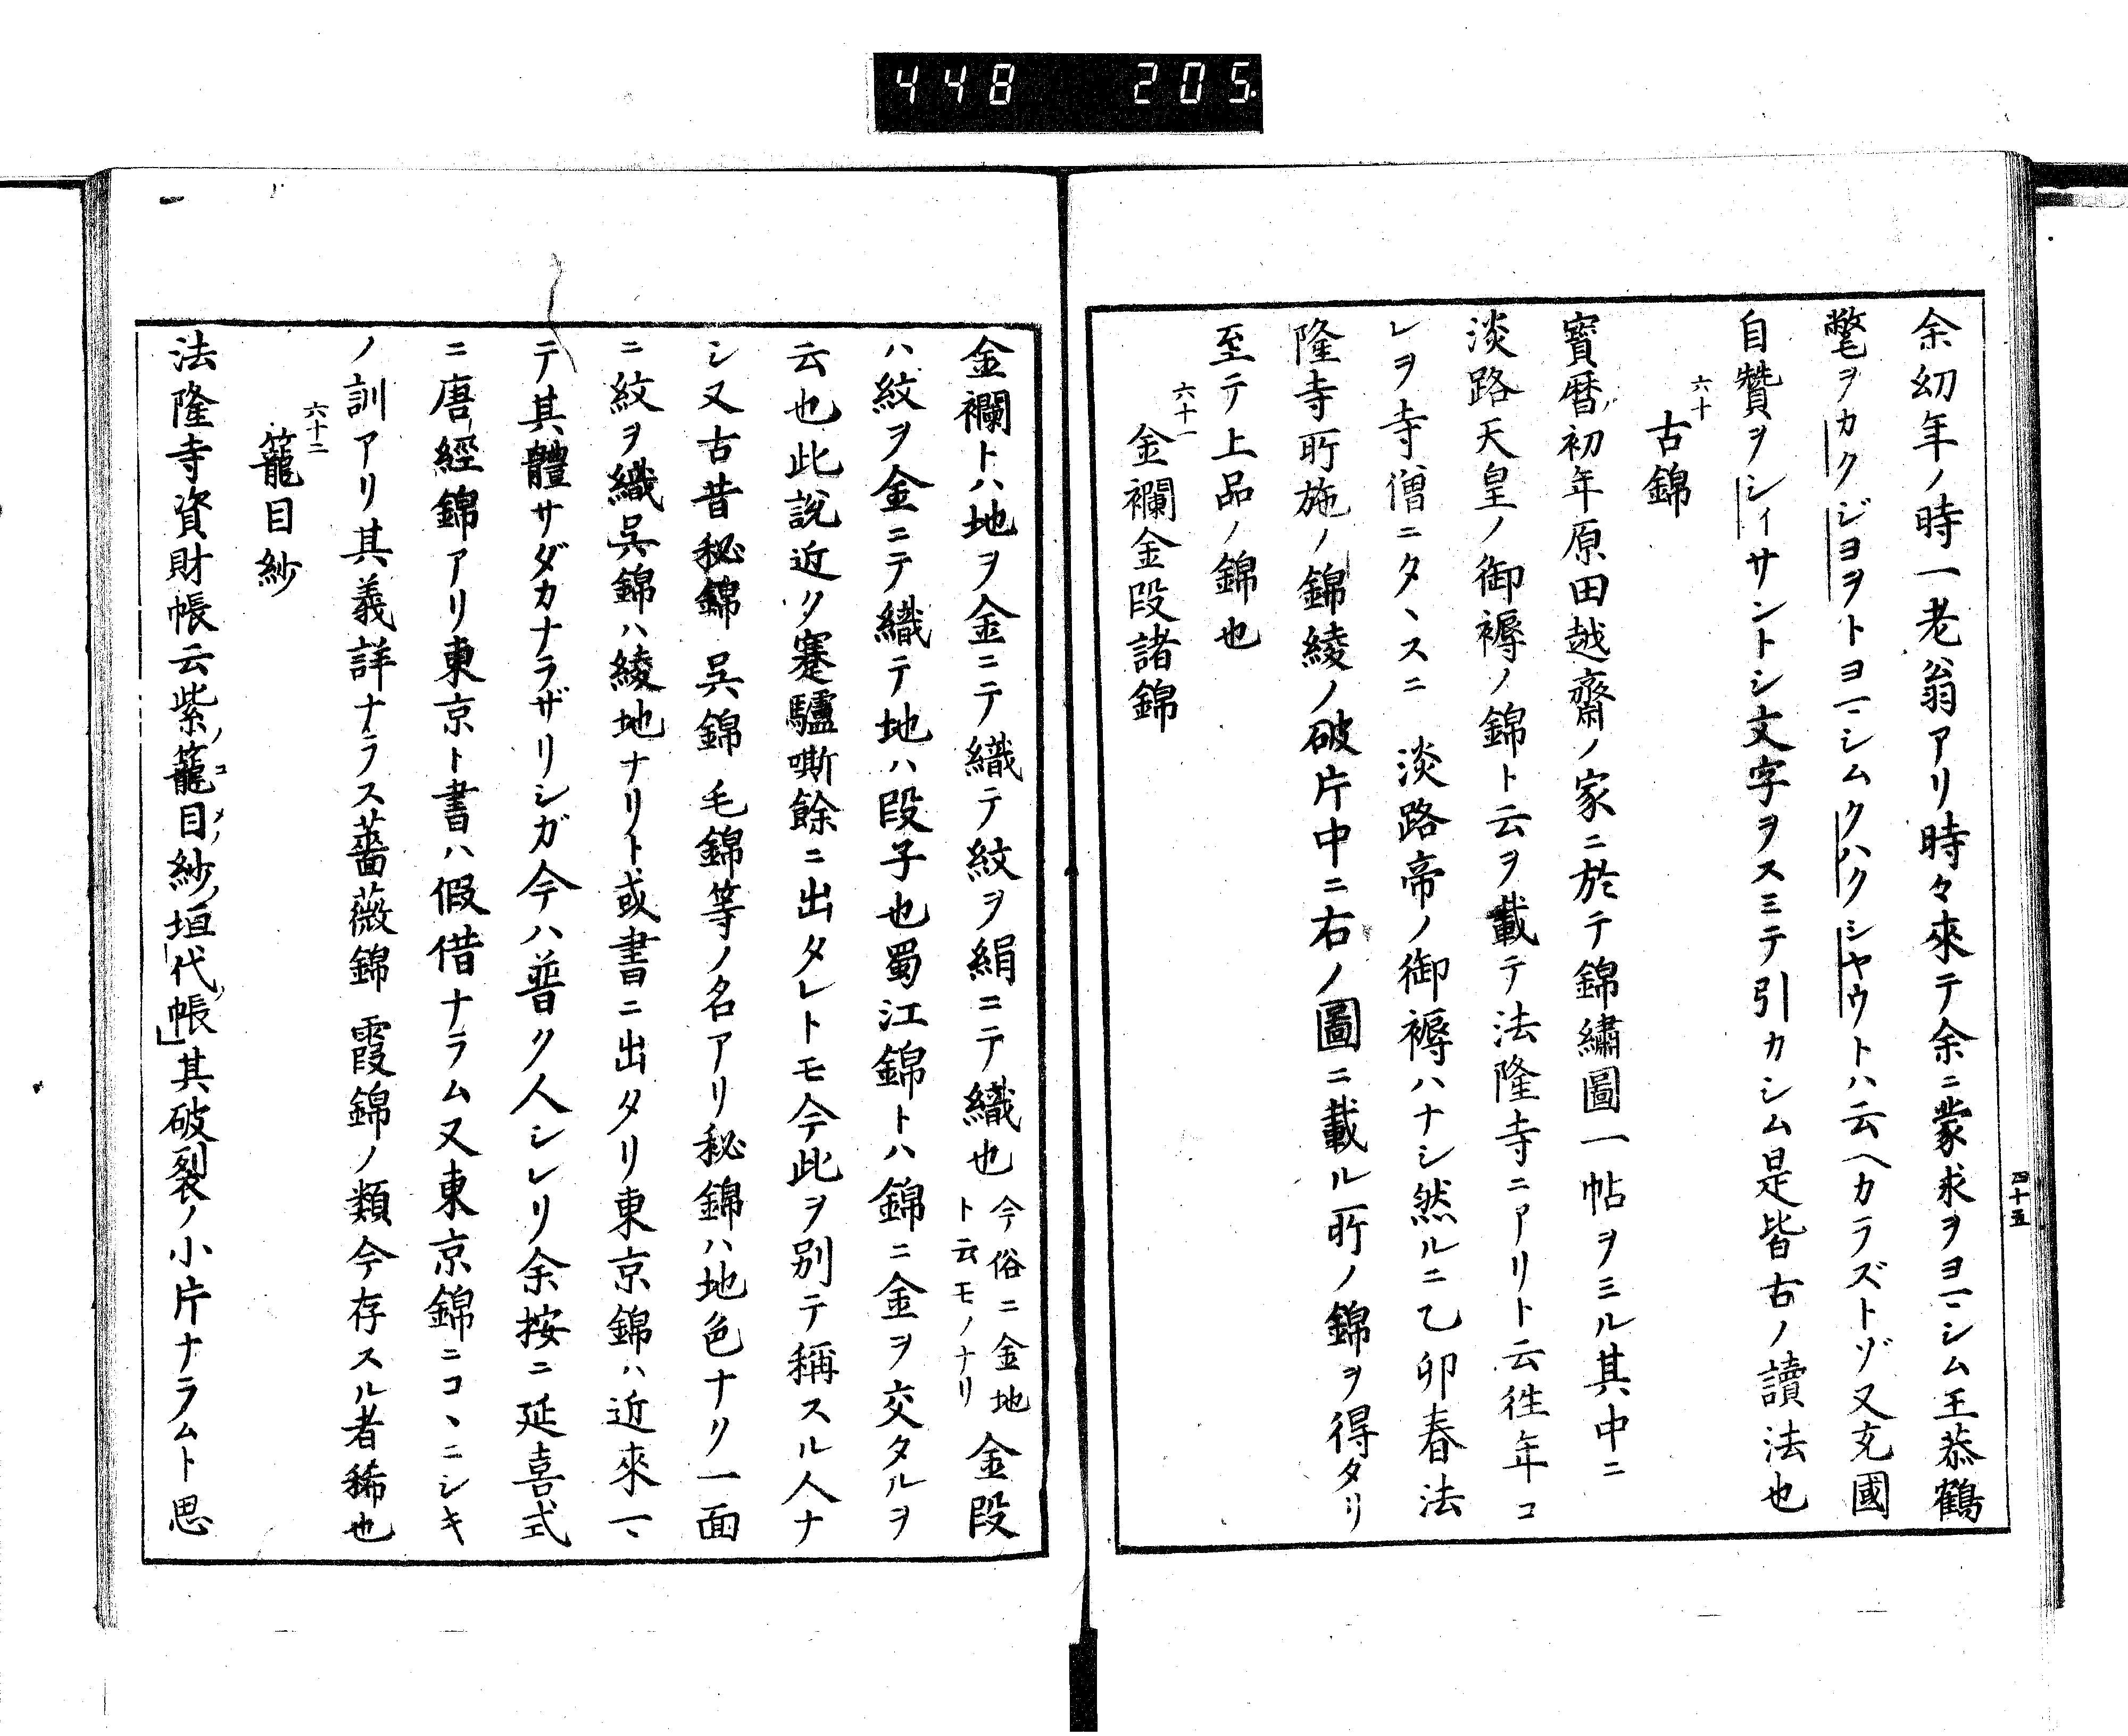 448 205.
四十五
余幼年ノ時一老翁アリ時々來テ余ニ蒙求ヲヨマシム王恭鶴
氅ヲカクジヨヲトヨマシムクハクシヤウトハ云ヘカラズトゾ又充國
自贊ヲシイサントシ文字ヲスミテ引カシム是皆古ノ讀法也
六十
古錦
寳暦ノ初年原田越齋ノ家ニ於テ錦繡圖一帖ヲミル其中ニ
淡路天皇ノ御褥ノ錦ト云ヲ載テ法隆寺ニアリト云徃年コ
レヲ寺僧ニタヽスニ 淡路帝ノ御褥ハナシ然ルニ乙卯春法
隆寺所施ノ錦綾ノ破片中ニ右ノ圖ニ載ル所ノ錦ヲ得タリ
至テ上品ノ錦也
六十一
金襴金段諸錦
金襴トハ地ヲ金ニテ織テ紋ヲ絹ニテ織也 今俗ニ金地ト云モノナリ 金段
ハ紋ヲ金ニテ織テ地ハ段子也蜀江錦トハ錦ニ金ヲ交タルヲ
云也此説近ク蹇驢嘶餘ニ出タレトモ今此ヲ別テ稱スル人ナ
シ又古昔秘錦 呉錦 毛錦等ノ名アリ秘錦ハ地色ナリ一面
ニ紋ヲ織呉錦ハ綾地ナリト或書ニ出タリ東京錦ハ近來マヽ
テ其體サダカナラザリシガ今ハ普ク人シレリ余按ニ延喜式
ニ唐經錦アリ東京ト書ハ假借ナラム又東京錦ニコヽニシキ
ノ訓アリ其義詳ナラス薔薇錦 霞錦ノ類今存スル者稀也
六十二
籠目紗
法隆寺資財帳云紫ノ籠目ノ紗ノ垣代帳其破裂ノ小片ナラムト思